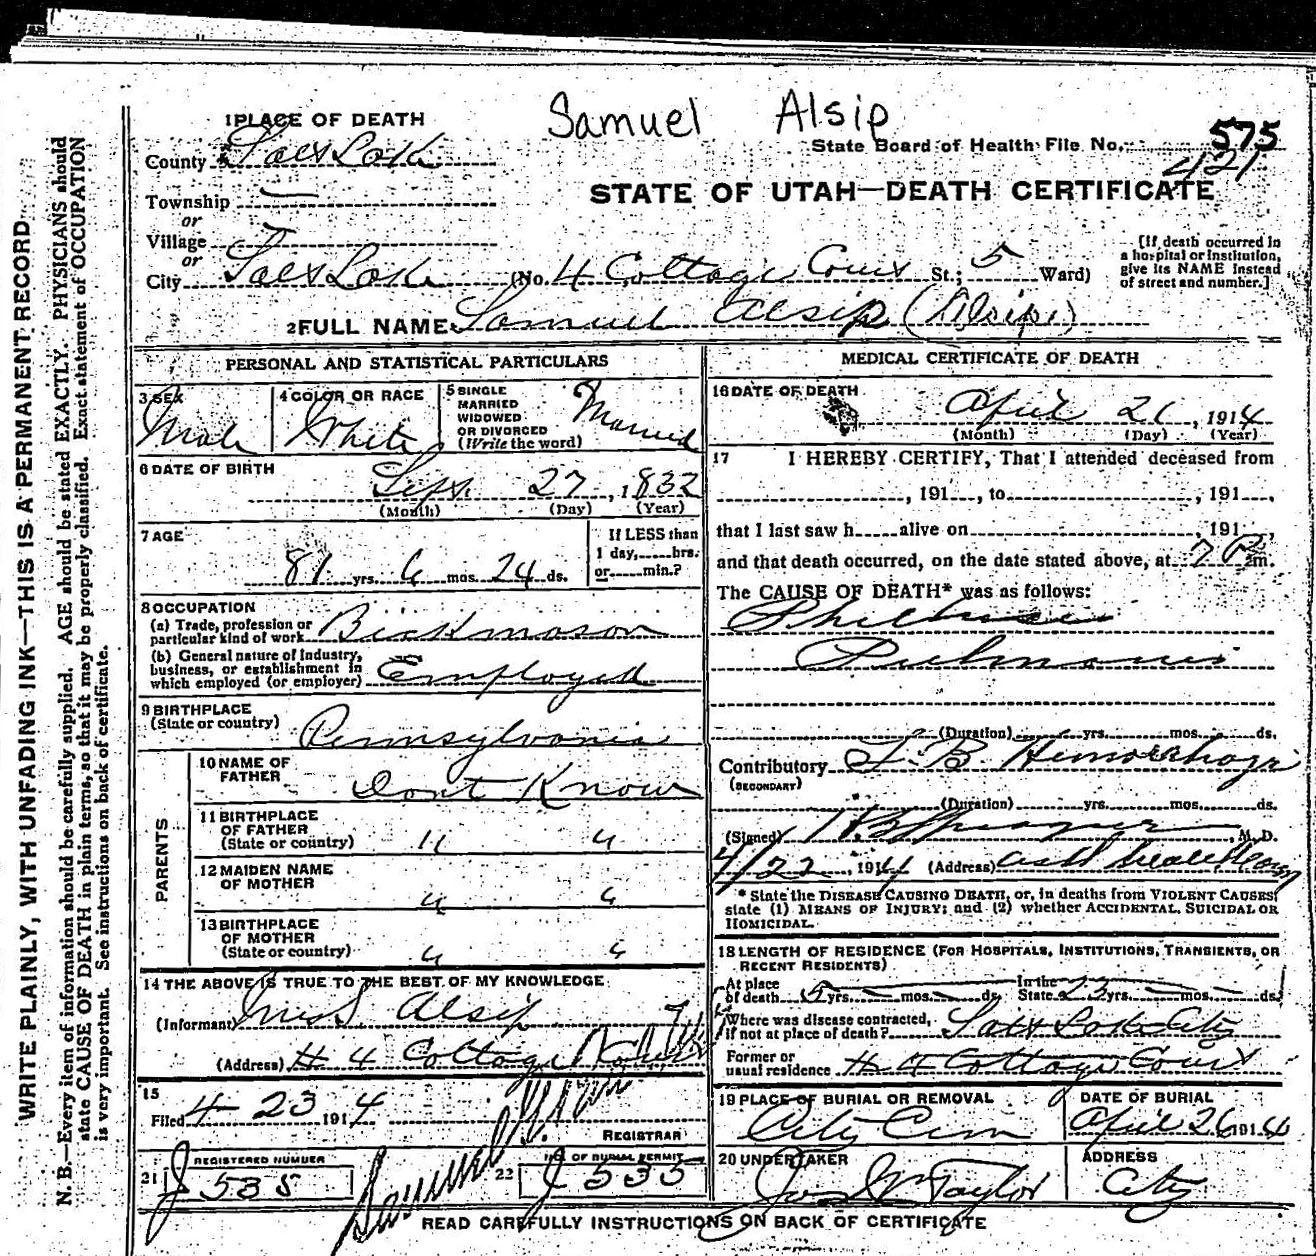 Samuel Alsip
1 PLACE OF DEATH
State Board of Health File No. 575
421
County Salt Lake
STATE OF UTAH—DEATH CERTIFICATE
Township
or
Village
or
City Salt Lake (No. 4 Cottage Court St.; 5 Ward)
[If death occurred in a hospital or institution, give its NAME instead of street and number.]
2 FULL NAME Samuel Alsip (Alsip)
PERSONAL AND STATISTICAL PARTICULARS
3 SEX Male
4 COLOR OR RACE White
5 SINGLE MARRIED WIDOWED OR DIVORCED (Write the word) Married
6 DATE OF BIRTH Sept. 27, 1832
(Month) (Day) (Year)
7 AGE 81 yrs. 6 mos. 24 ds.
If LESS than 1 day, hrs. or min.?
8 OCCUPATION
(a) Trade, profession or particular kind of work Brickmason
(b) General nature of industry, business, or establishment in which employed (or employer) Employed
9 BIRTHPLACE (State or country) Pennsylvania
PARENTS
10 NAME OF FATHER Dont Know
11 BIRTHPLACE OF FATHER (State or country) " "
12 MAIDEN NAME OF MOTHER " "
13 BIRTHPLACE OF MOTHER (State or country) " "
14 THE ABOVE IS TRUE TO THE BEST OF MY KNOWLEDGE
(Informant) Mrs S. Alsip
(Address) # 4 Cottage Court
15
Filed 4 23 1914
REGISTRAR
21 REGISTERED NUMBER J 535
22 NO. OF BURIAL PERMIT J 535
MEDICAL CERTIFICATE OF DEATH
16 DATE OF DEATH April 21, 1914
(Month) (Day) (Year)
17 I HEREBY CERTIFY, That I attended deceased from
, 191 , to , 191 ,
that I last saw h alive on 191 ,
and that death occurred, on the date stated above, at 7 P m.
The CAUSE OF DEATH* was as follows:
(Duration) yrs. mos. ds.
Contributory T. B. Hemorrhage
(SECONDARY)
(Duration) yrs. mos. ds.
(Signed) M. D.
4/22, 1914 (Address)
* State the DISEASE CAUSING DEATH, or, in deaths from VIOLENT CAUSES, state (1) MEANS OF INJURY; and (2) whether ACCIDENTAL, SUICIDAL OR HOMICIDAL.
18 LENGTH OF RESIDENCE (FOR HOSPITALS, INSTITUTIONS, TRANSIENTS, OR RECENT RESIDENTS)
At place of death 5 yrs. mos. ds. In the State 23 yrs. mos. ds.
Where was disease contracted, if not at place of death? Salt Lake City
Former or usual residence # 4 Cottage Court
19 PLACE OF BURIAL OR REMOVAL City Cem
DATE OF BURIAL April 26 1914
20 UNDERTAKER Jos Wm Taylor
ADDRESS City
READ CAREFULLY INSTRUCTIONS ON BACK OF CERTIFICATE
WRITE PLAINLY, WITH UNFADING INK—THIS IS A PERMANENT RECORD
N. B.—Every item of information should be carefully supplied. AGE should be stated EXACTLY. PHYSICIANS should
state CAUSE OF DEATH in plain terms, so that it may be properly classified. Exact statement of OCCUPATION
is very important. See instructions on back of certificate.